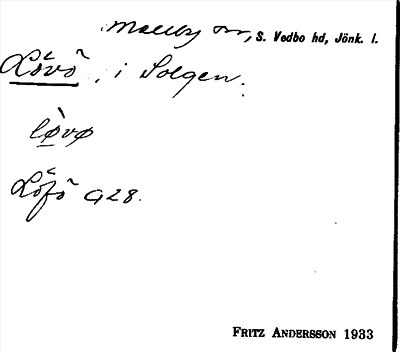 Malexander sn, S. Vedbo hd, Jönk. l.
Lövö, i Solgen.
løvø
Löfö G28.
FRITZ ANDERSSON 1933